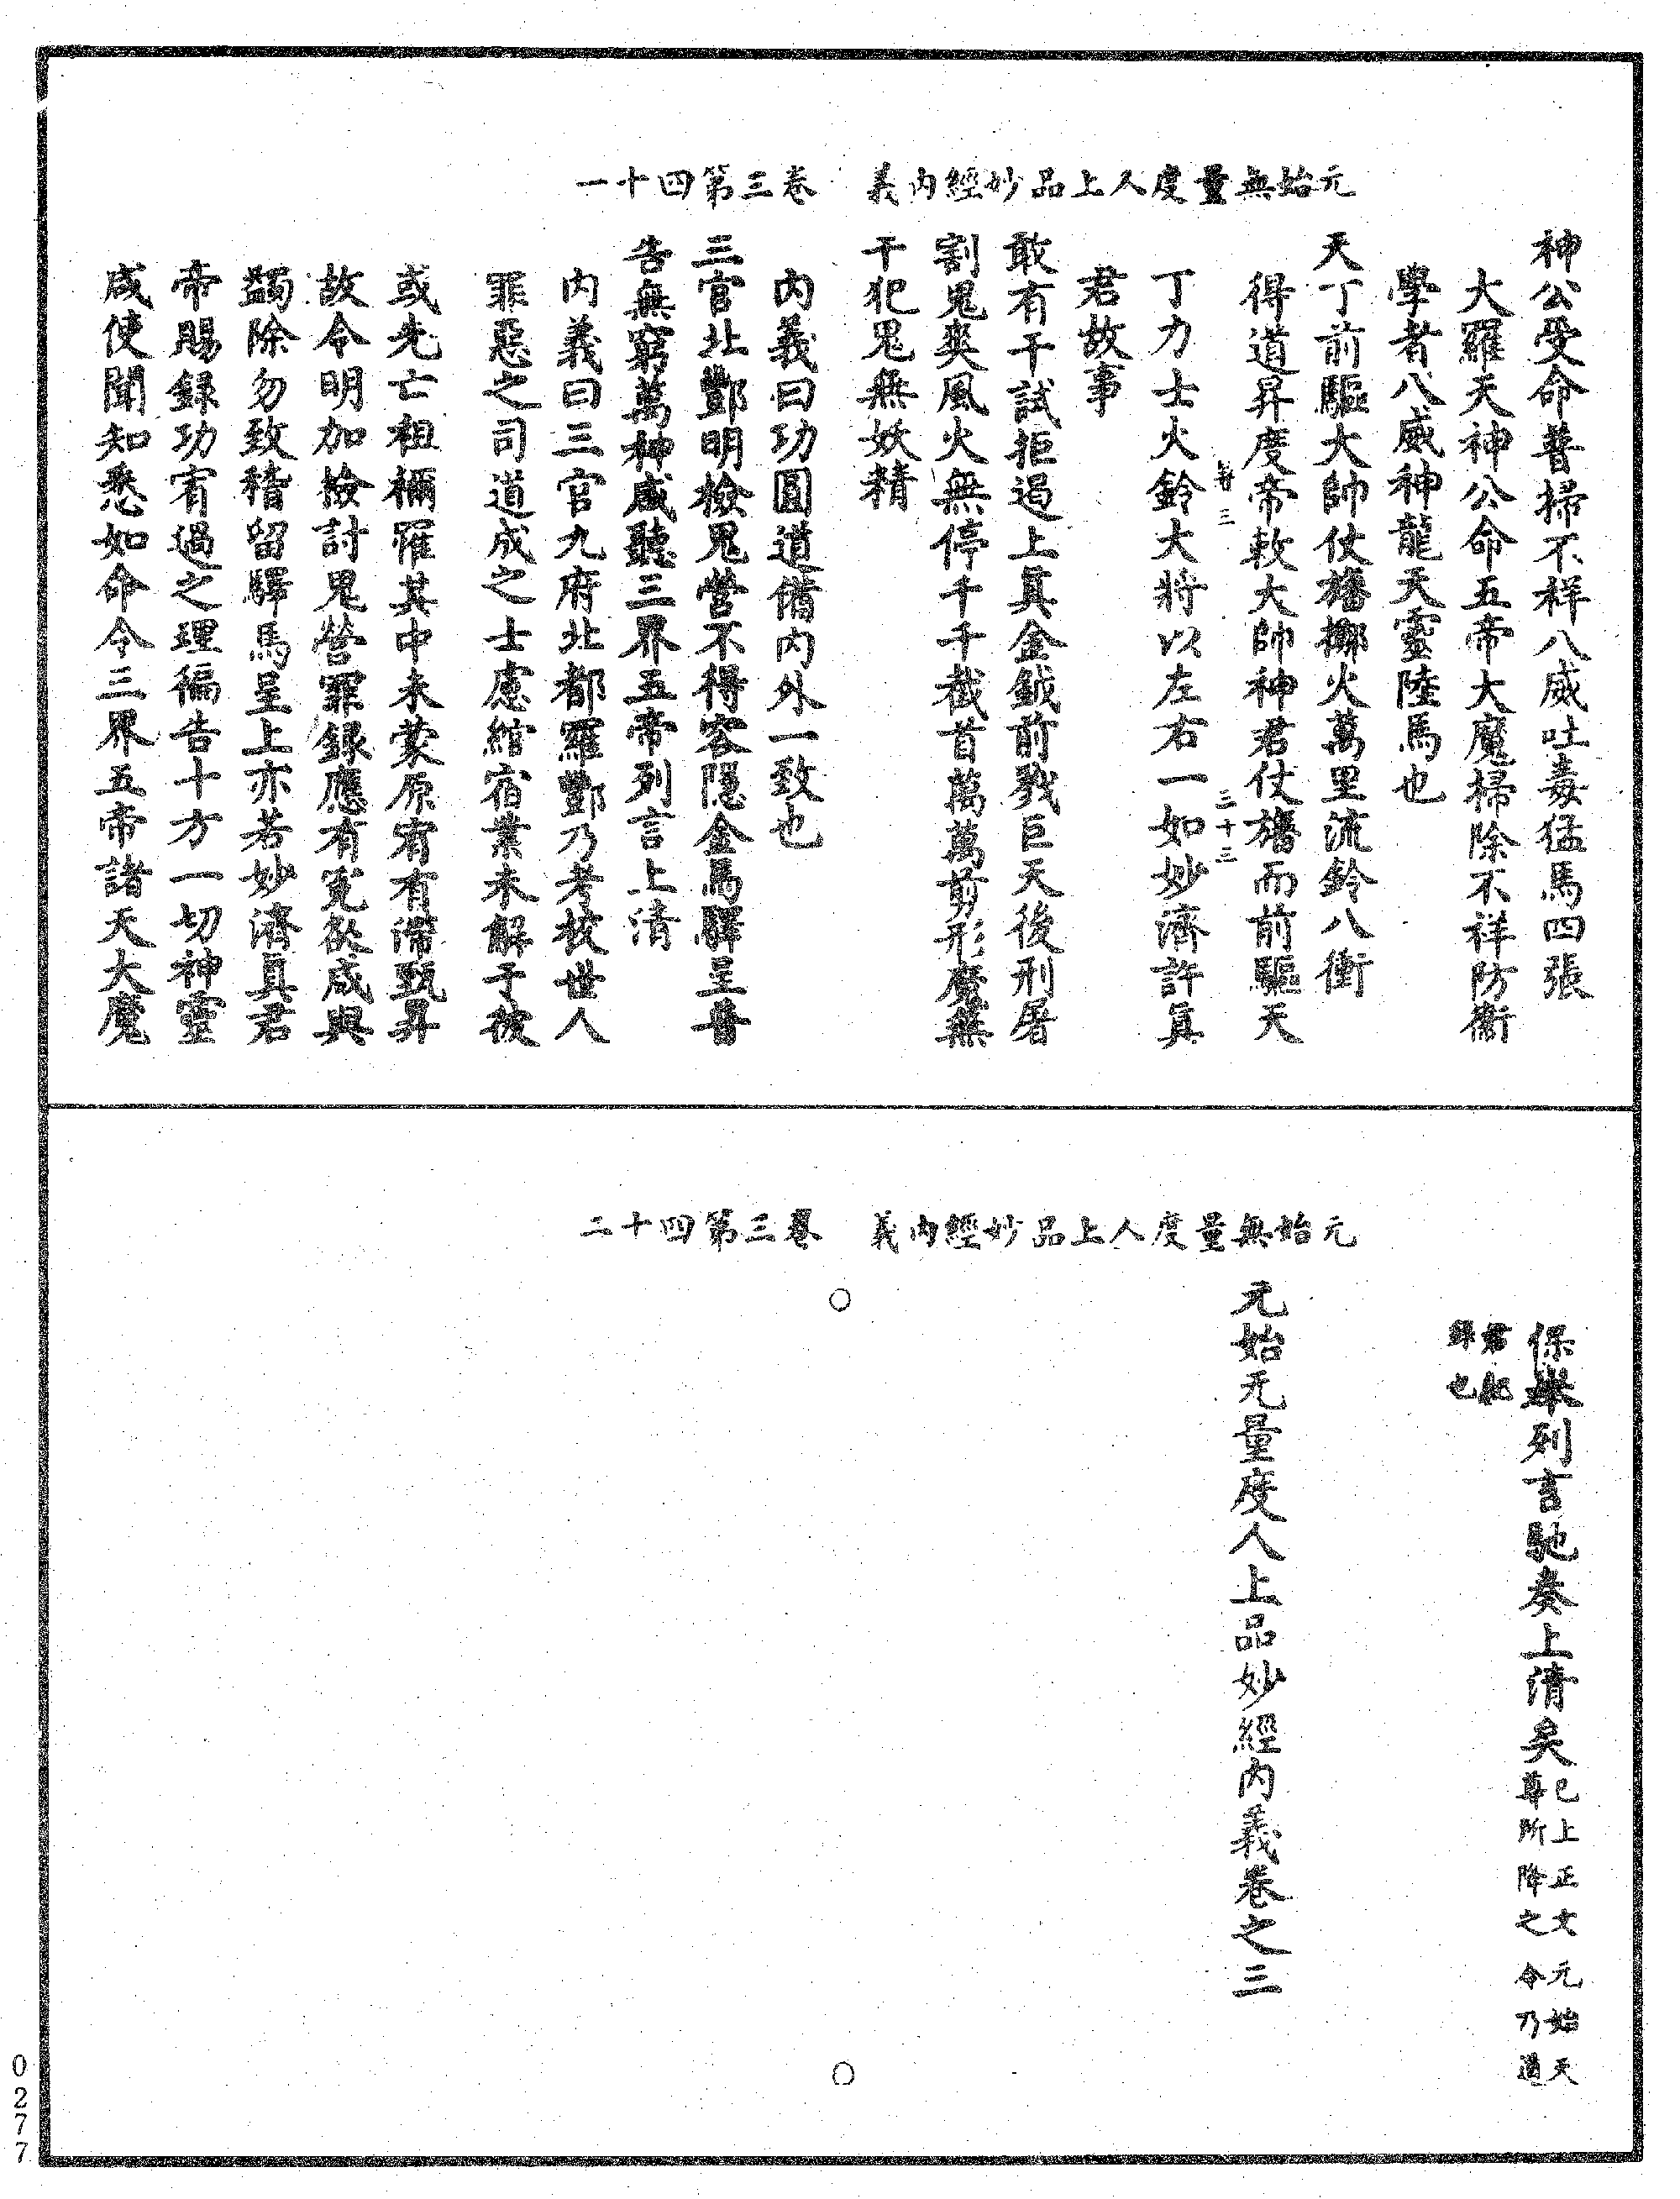 元始無量度人上品妙經內義　卷三第四十一
神公受命普掃不祥八威吐毒猛馬四張
大羅天神公命五帝大魔掃除不祥防衞
學者八威神龍天靈陸馬也
天丁前驅大帥仗旛擲火萬里流鈴八衝
得道昇度帝敕大帥神君仗旛而前驅天
三　三十三
丁力士火鈴大將以左右一如妙濟許眞
君故事
敢有干試拒遏上眞金鉞前戮巨天後刑屠
割鬼爽風火無停千千截首萬萬剪形魔無
干犯鬼無妖精
內義曰功圓道備內外一致也
三官北酆明檢鬼營不得容隱金馬驛呈普
告無窮萬神咸聽三界五帝列言上清
內義曰三官九府北都羅酆乃考校世人
罪惡之司道成之士慮綰宿業未解于彼
或先亡祖禰罹其中未蒙原宥有滯甄昇
故令明加檢討鬼營罪録應有寃欲咸與
蠲除勿致稽留驛馬呈上亦若妙濟眞君
帝賜録功宥過之理徧告十方一切神靈
咸使聞知悉如命令三界五帝諸天大魔
元始無量度人上品妙經內義　卷三第四十二
保舉列言馳奏上清矣已上正文元始天
尊所降之令乃道
君紀
録也
元始无量度人上品妙經內義卷之三
0277